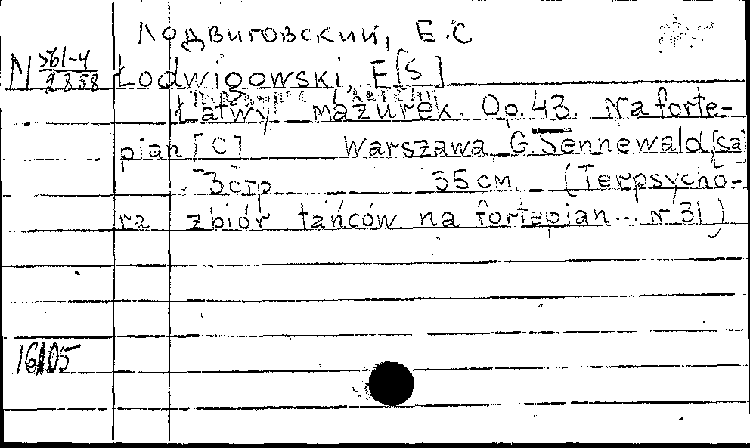 Лодвиговский, Е.С
N 361-4
2838
Łodwigowski, E[S]
Łatwy mazurek. Op. 43. Na forte-
pian [C] Warszawa, G. Sennewald, [ca]
3 стр. 35 см. (Terpsycho-
ra zbiór tańców na fortepian... nr 31)
16/05